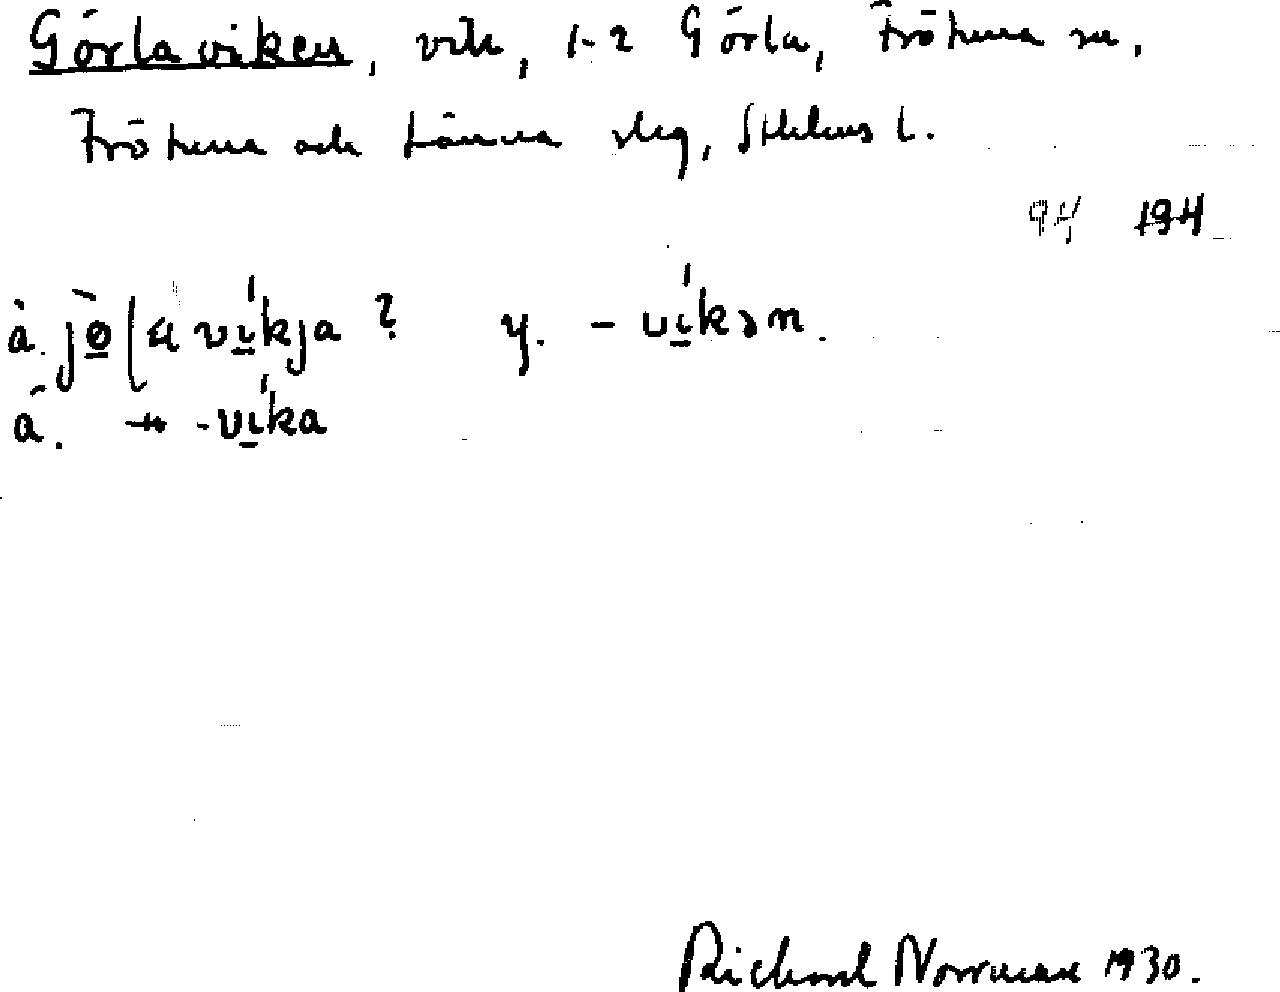 Görlaviken, vik, 1-2 Görla, Frötuna sn,
Frötuna och Länna skg, Sthlms l.
94 194
à. jò̱ɭa vi̱kja ? y. - vi̱kən.
á. " -vi̱ka
Richard Norrman 1930.